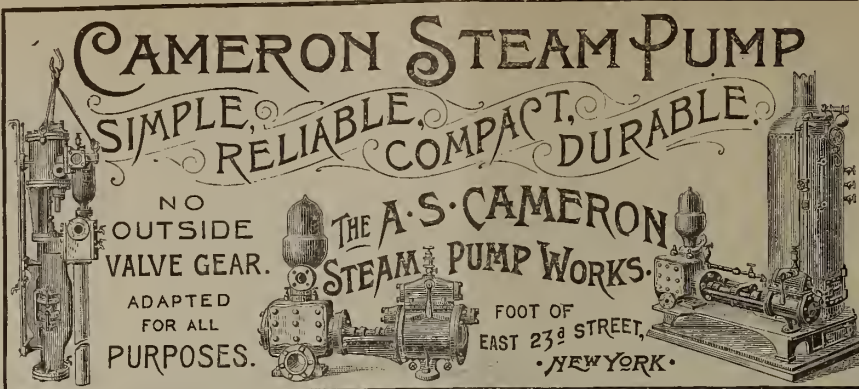 CAMERON STEAM PUMP
SIMPLE, RELIABLE, COMPACT, DURABLE.
NO
OUTSIDE
VALVE GEAR.
ADAPTED
FOR ALL
PURPOSES.
THE A·S·CAMERON
STEAM PUMP WORKS.
FOOT OF
EAST 23d STREET,
·NEW YORK·